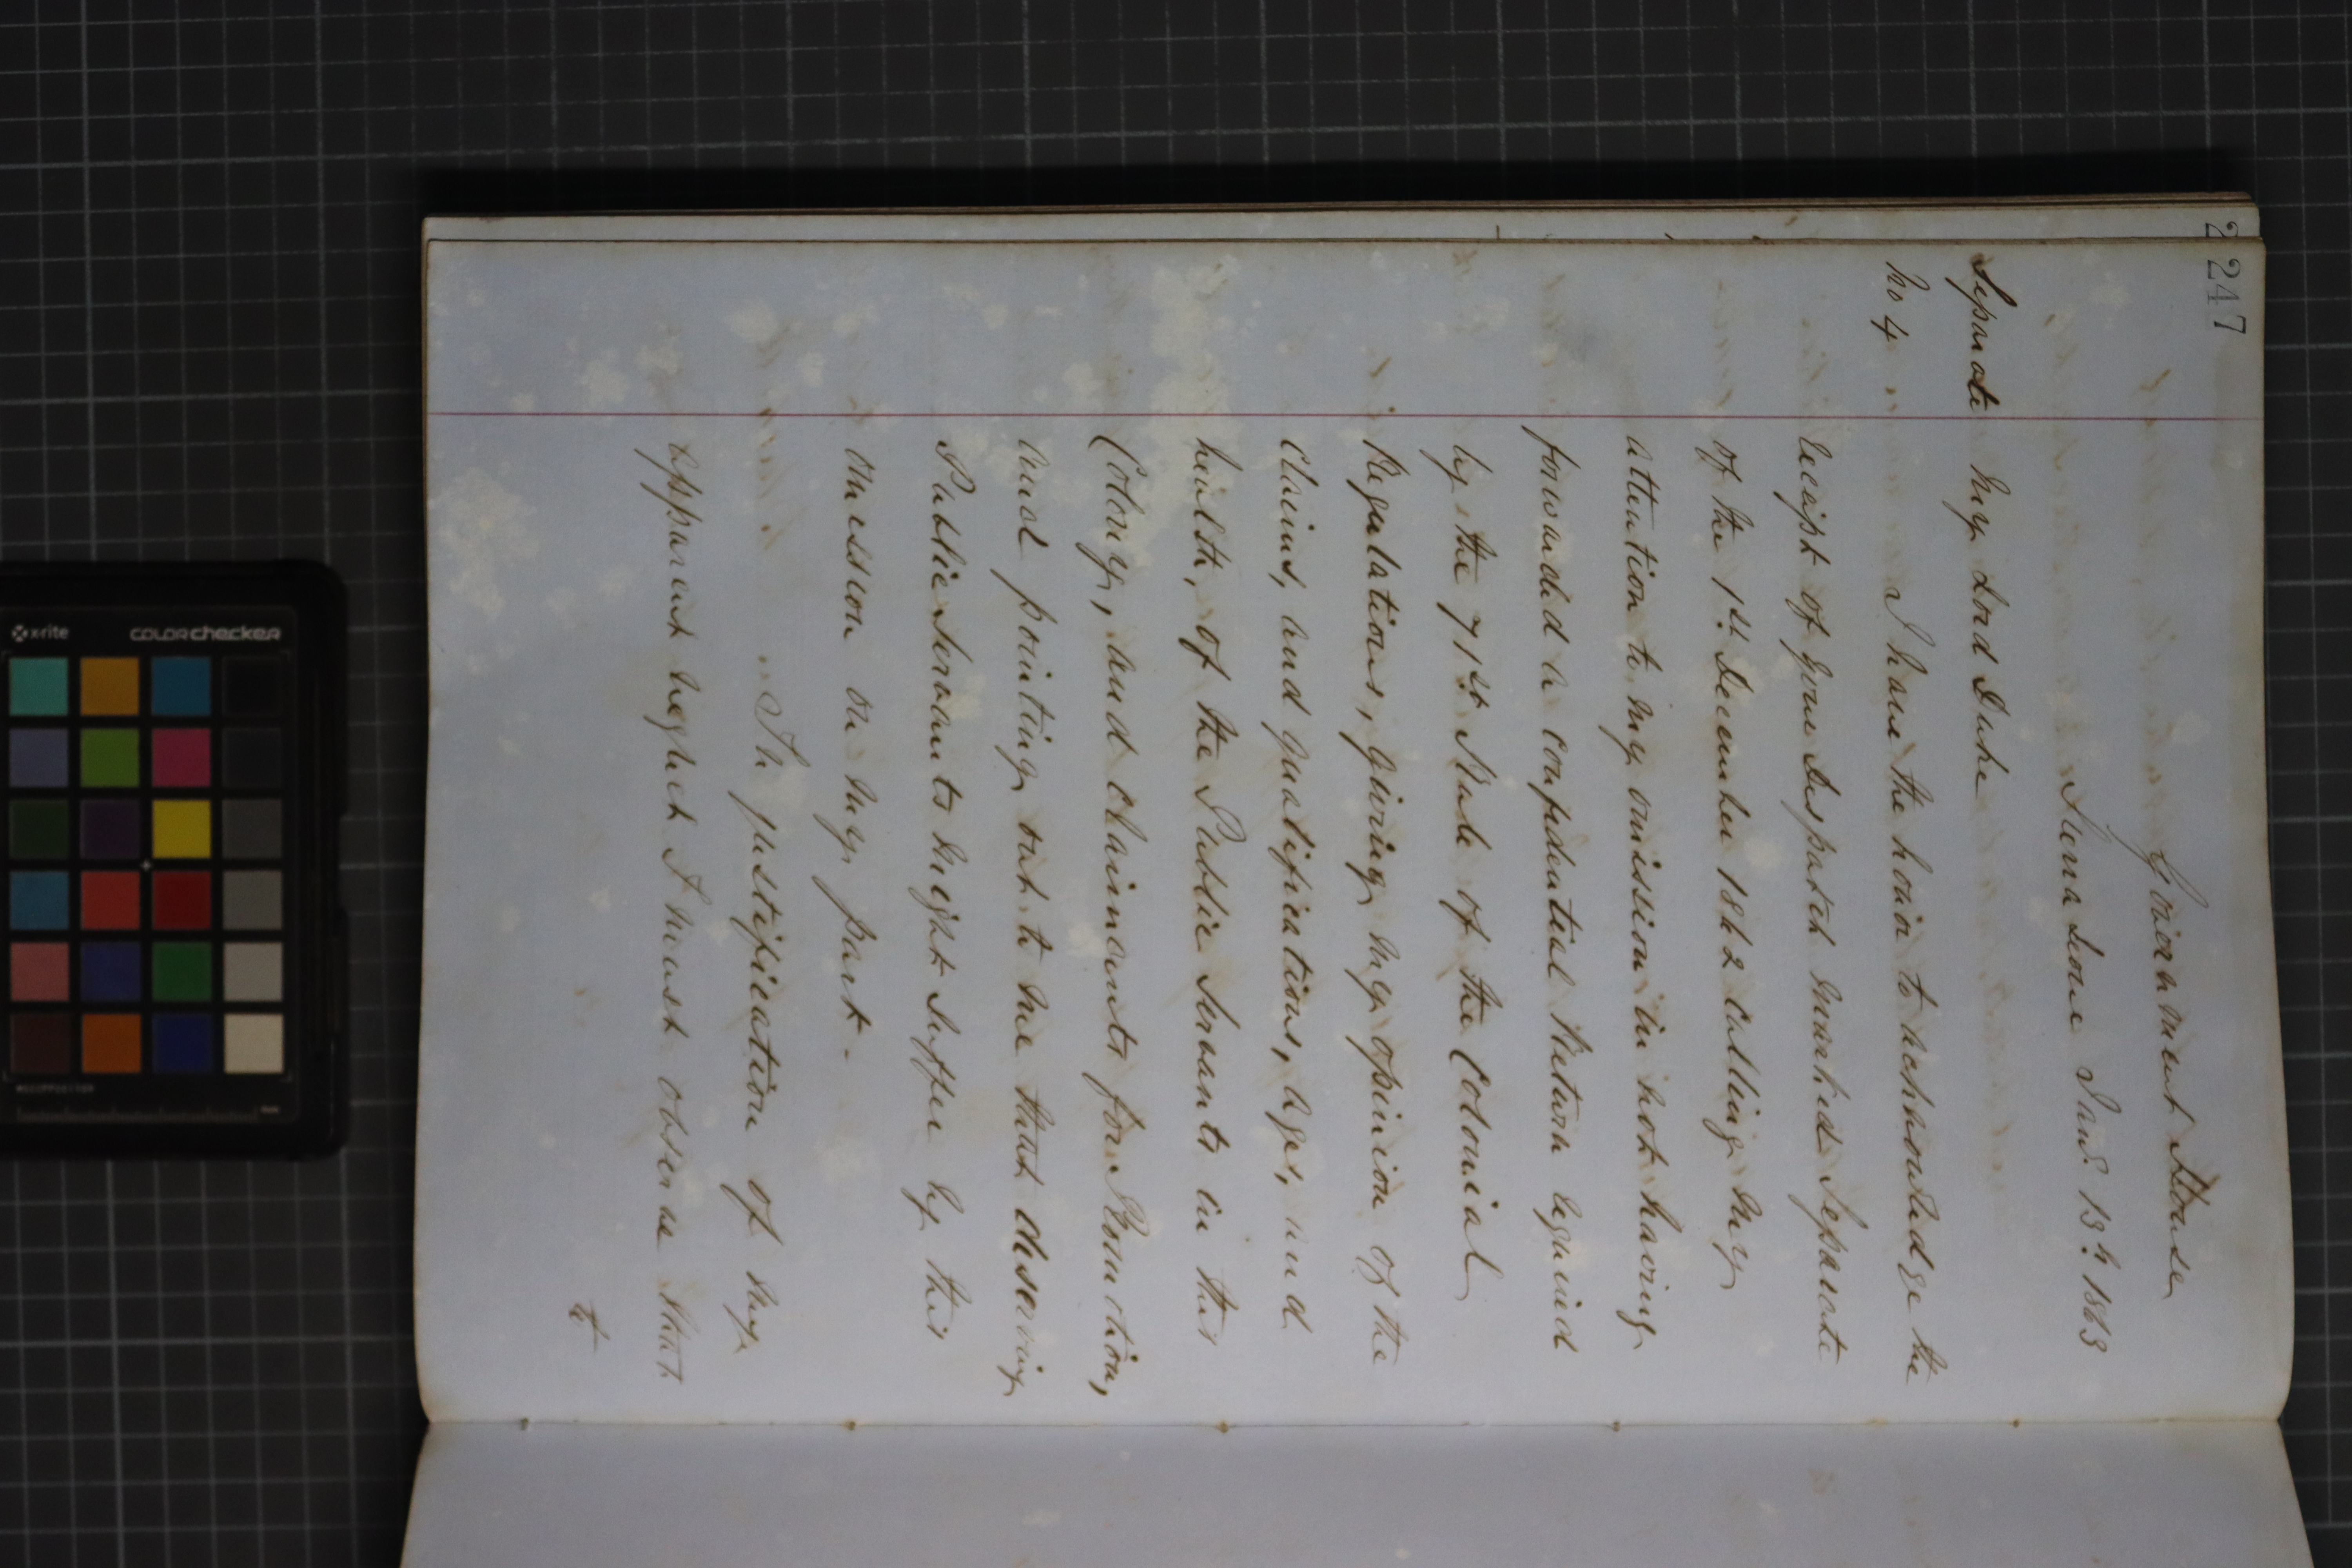 247
Government House
Sierra Leone Jany. 13th. 1863
Separate My Lord Duke
No 4 I have the honor to acknowledge the
receipt of your Despatch marked Separate
of the 1st. December 1862 calling my
attention to my omission in not having
forwarded a confidential Return required
by the 71st Rule of the Colonial
Regulations, giving my opinion of the
claims, and qualifications, ages, and
health, of the Public Servants in this
Colony, and claimants for Promotion,
and pointing out to me that deserving
Public Servants might suffer by this
omission on my part -
In justification of my
apparent neglect I must observe that
x-rite
colorchecker